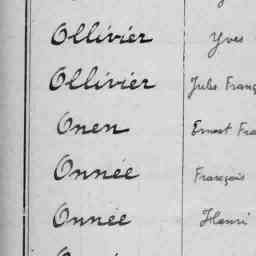 Ollivier Yves
Ollivier Jules Franç
Onen Ernest Fra
Onnée François
Onnée Henri